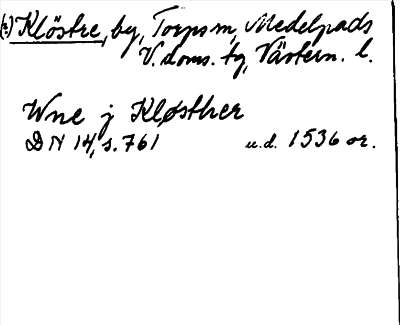 (2) Klöstre, by, Torps sn, Medelpads
V. doms. tg, Västern. l.
Wne j Kløsther
DN 14, s. 761 u.d. 1536 or.